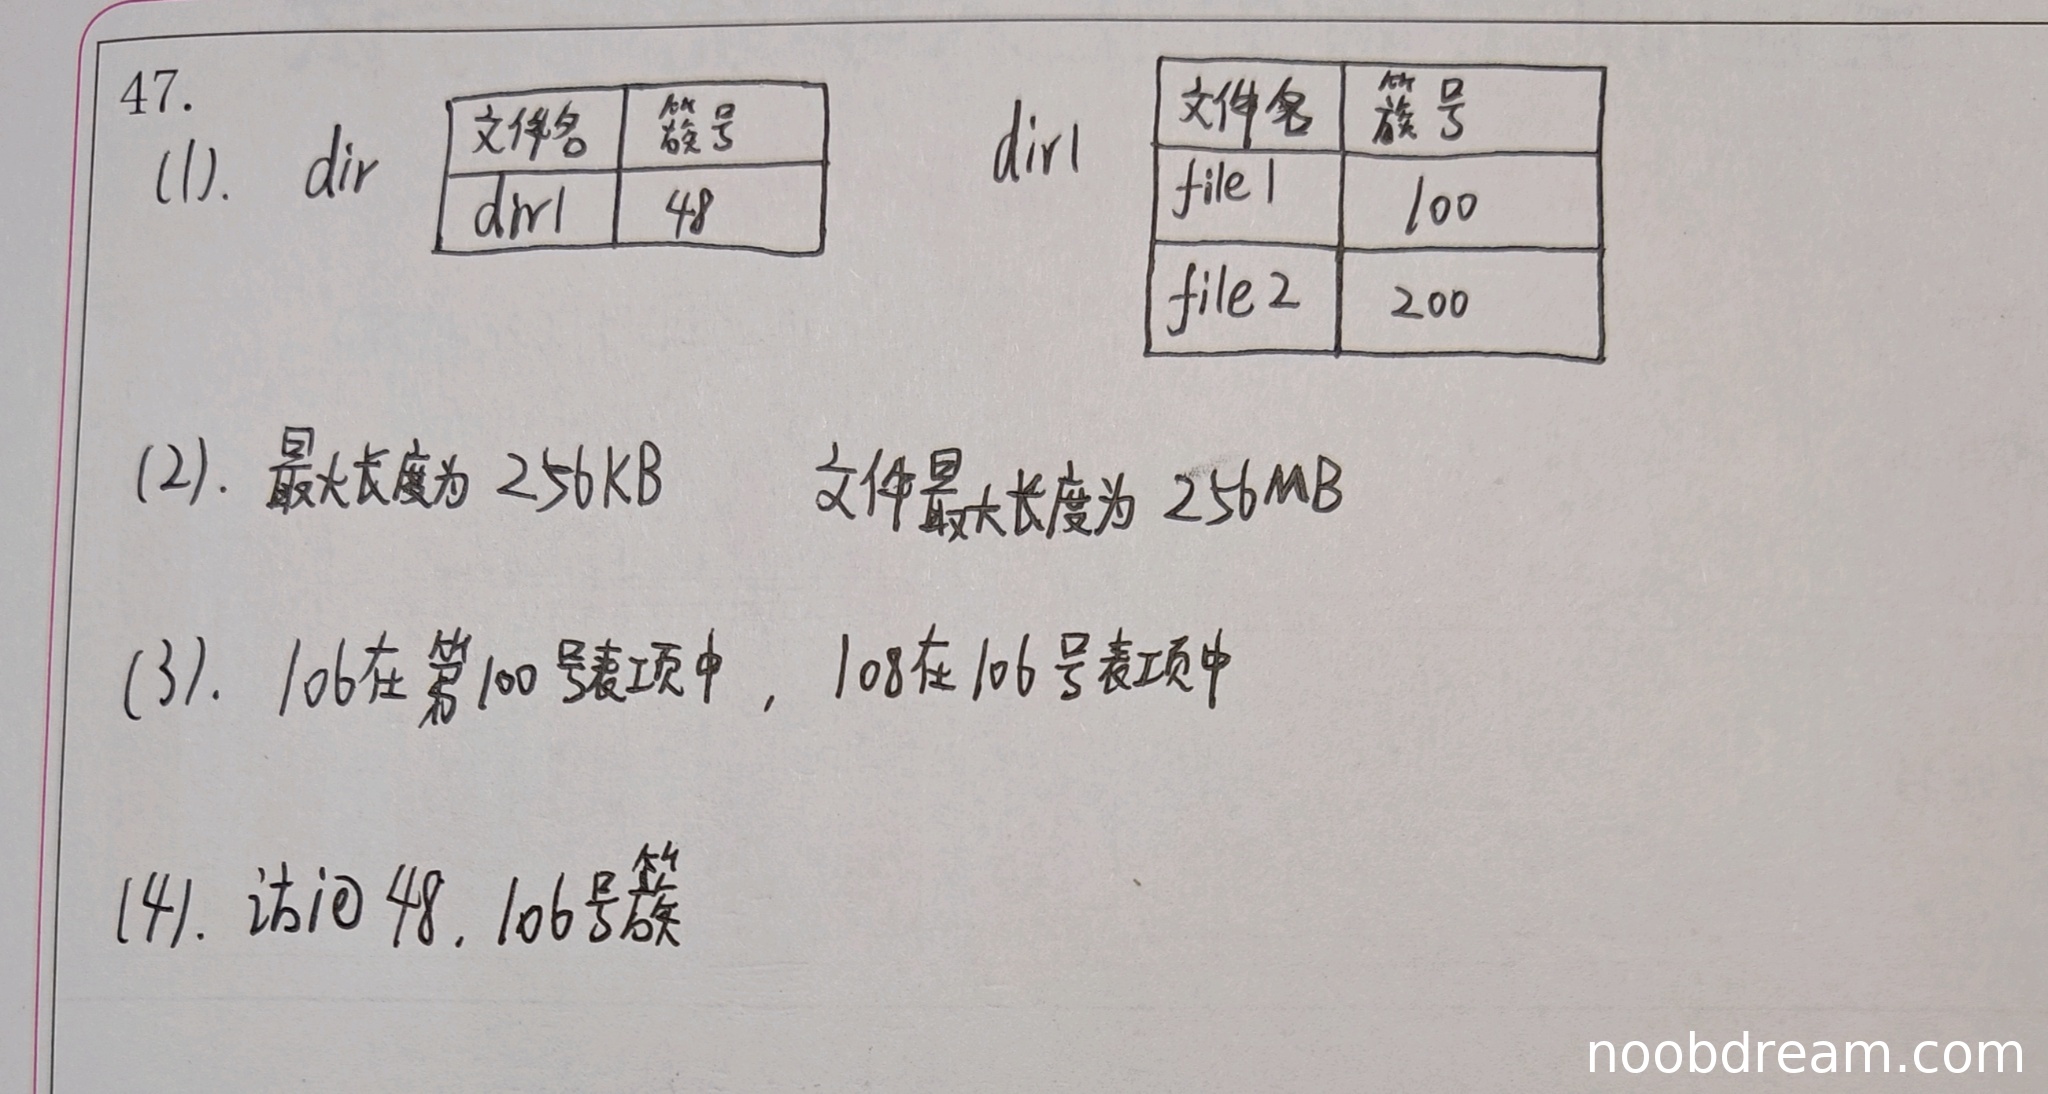 47.
(1). dir
文件名 簇号
dir1 48
dir1
文件名 簇号
file1 100
file2 200
(2). 最大长度为 256KB 文件最大长度为 256MB
(3). 106在第100号表项中, 108在106号表项中
(4). 访问48. 106号簇
noobdream.com